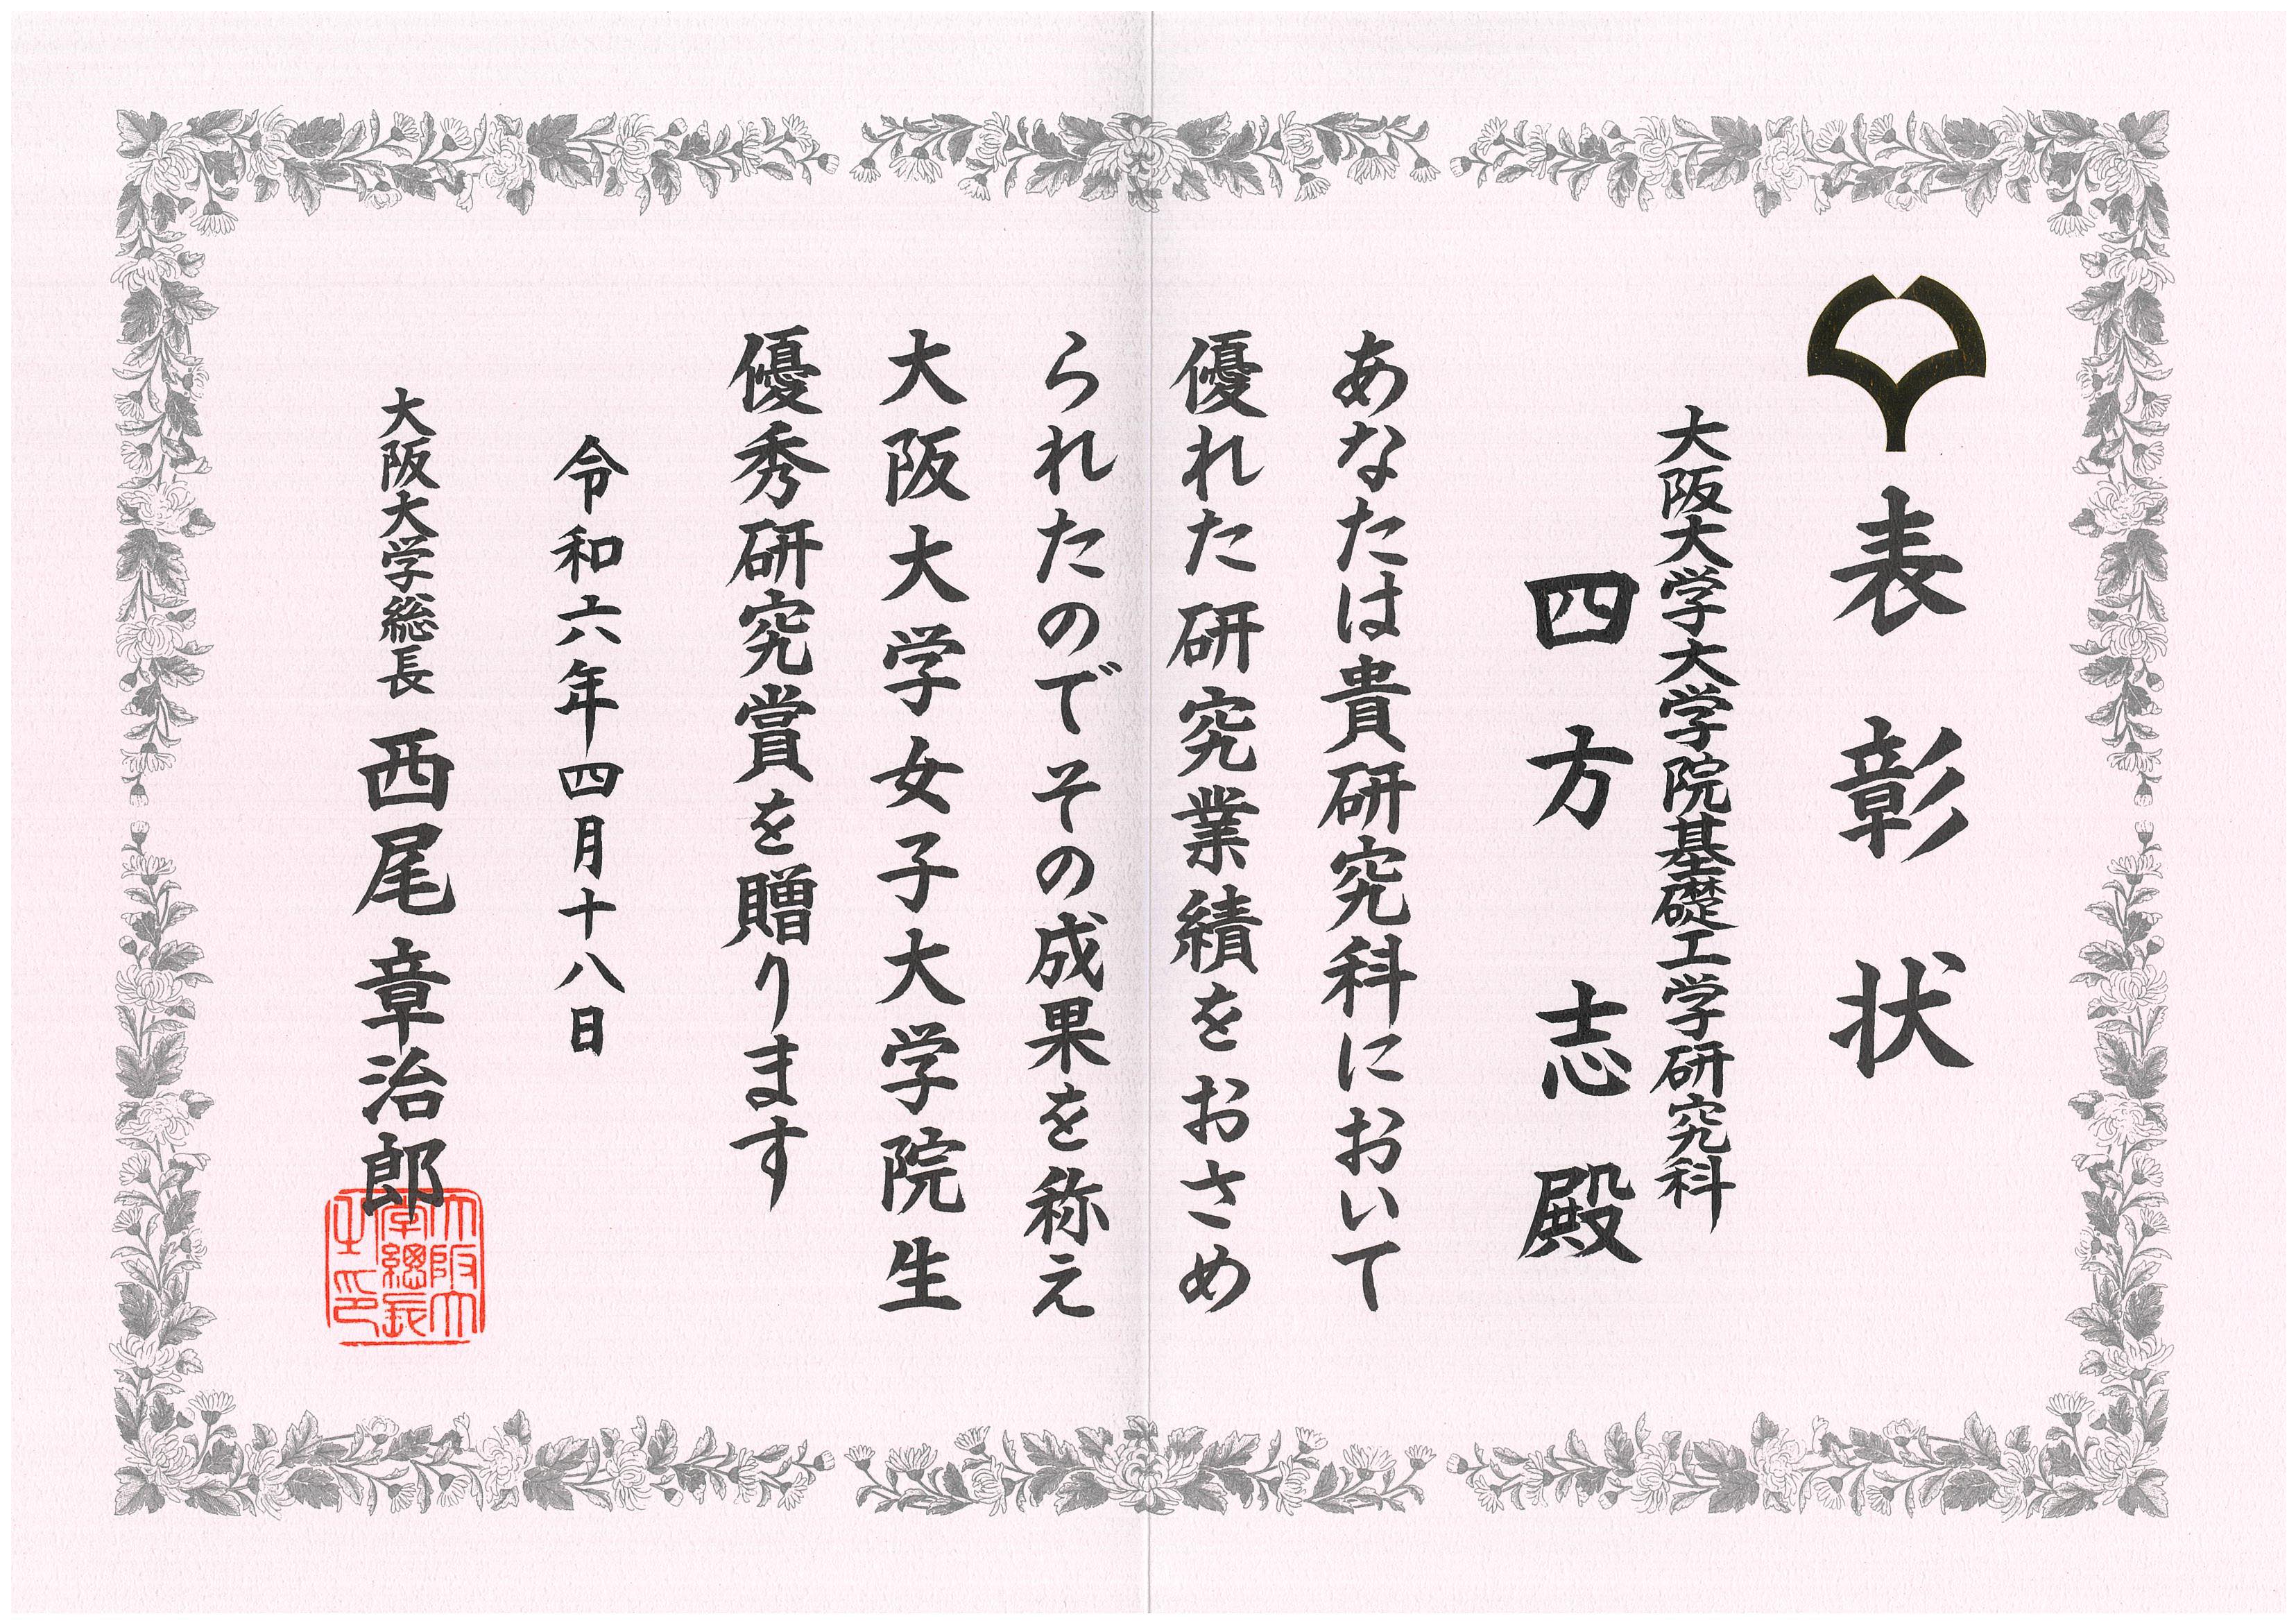 表彰状
大阪大学大学院基礎工学研究科
四方志殿
あなたは貴研究科において
優れた研究業績をおさめ
られたのでその成果を称え
大阪大学女子大学院生
優秀研究賞を贈ります
令和六年四月十八日
大阪大学総長 西尾章治郎
大阪大
学總長
之印